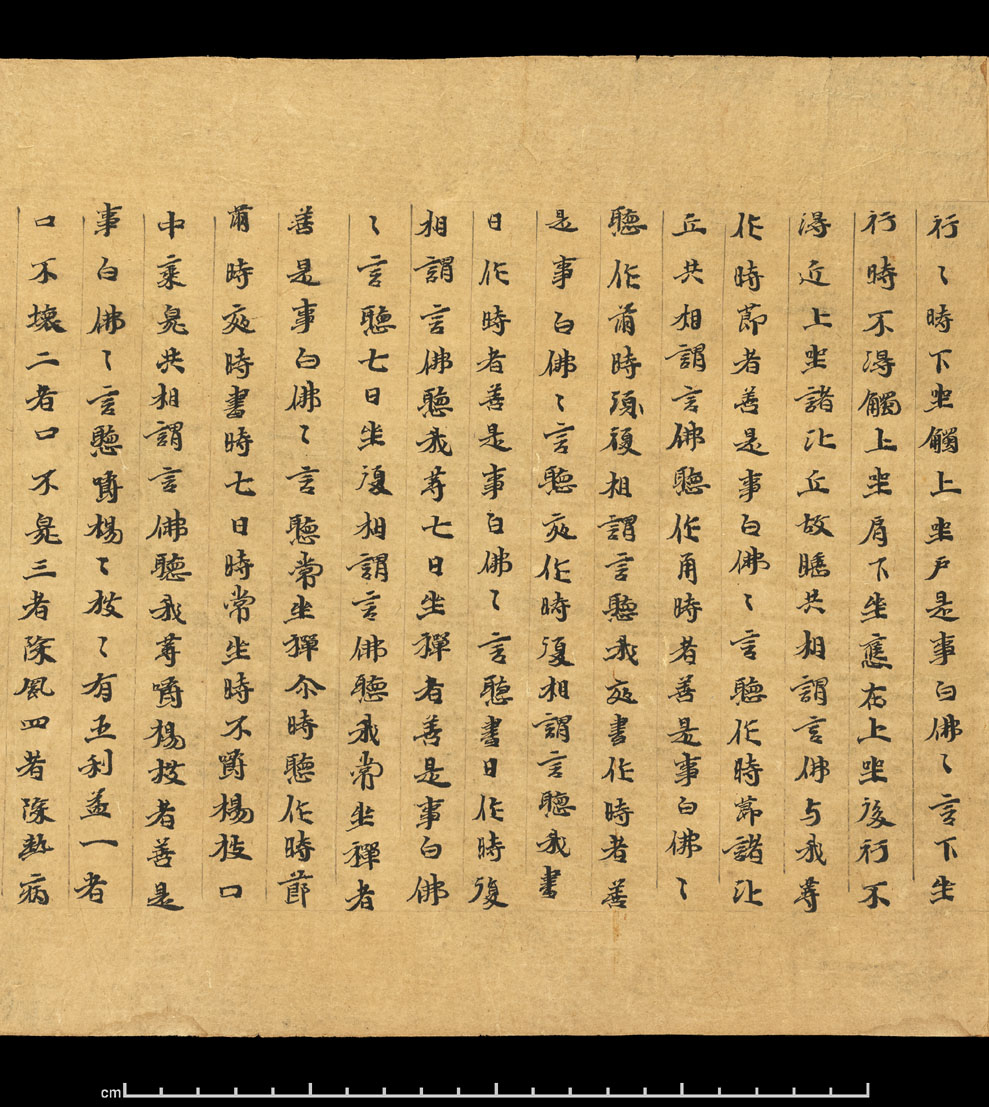 行〻時下坐觸上坐戶是事白佛〻言下坐
行時不得觸上坐肩下坐應在上坐後行不
得近上坐諸比丘故睡共相謂言佛与我等
作時節者善是事白佛〻言聽作時節諸比
丘共相謂言佛聽作用時者善是事白佛〻
聽作爾時須復相謂言聽我夜書作時者善
是事白佛〻言聽夜作時復相謂言聽我書
日作時者善是事白佛〻言聽書日作時復
相謂言佛聽我等七日坐禪者善是事白佛
〻言聽七日坐復相謂言佛聽我常坐禪者
善是事白佛〻言聽常坐禪尒時聽作時節
爾時夜時書時七日時常坐時不嚼楊枝口
中棄臰共相謂言佛聽我等嚼楊枝者善是
事白佛〻言聽嚼楊〻枝〻有五利益一者
口不壞二者口不臰三者除風四者除熱病
cm